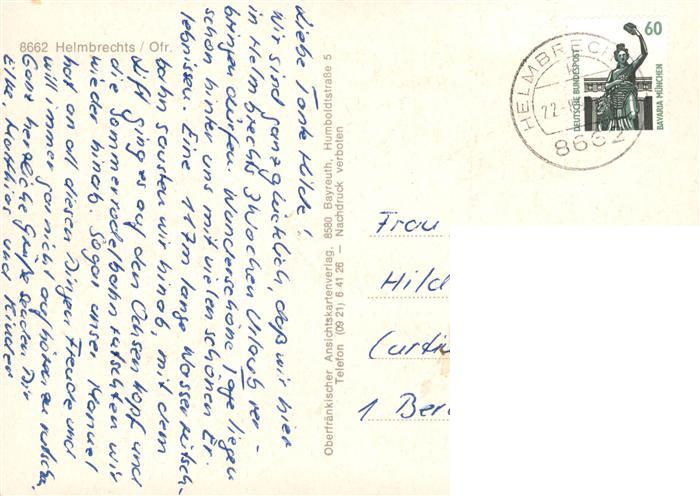 8662 Helmbrechts / Ofr.
Liebe Tante Hilde!
Wir sind ganz glücklich, daß wir hier
in Helmbrechts 3 Wochen Urlaub ver-
bringen dürfen. Wunderschöne Tage liegen
schon hinter uns mit vielen schönen Er-
lebnissen. Eine 117m lange Wasserrutsch-
bahn sausten wir hinab, mit dem
Lift ging es auf den Ochsenkopf und
die Sommerrodelbahn rutschten wir
wieder hinab. Sogar unser Manuel
hat an all diesen Dingen Freude und
will immer gar nicht aufhören zu rutschen.
Ganz herzliche Grüße senden Dir
Elke, Matthias und Kinder
Oberfränkischer Ansichtskartenverlag, 8580 Bayreuth, Humboldtstraße 5
Telefon (09 21) 6 41 26 — Nachdruck verboten
HELMBRECH
22.
8662
60
DEUTSCHE BUNDESPOST
BAVARIA MÜNCHEN
Frau
Hild
Curti
1 Ber